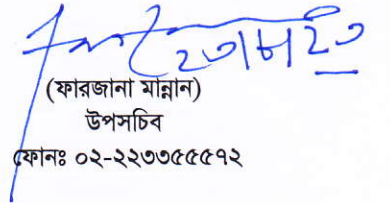 ২৩/৮/২৩
(ফারজানা মান্নান)
উপসচিব
ফোনঃ ০২-২২৩৩৫৫৫৭২